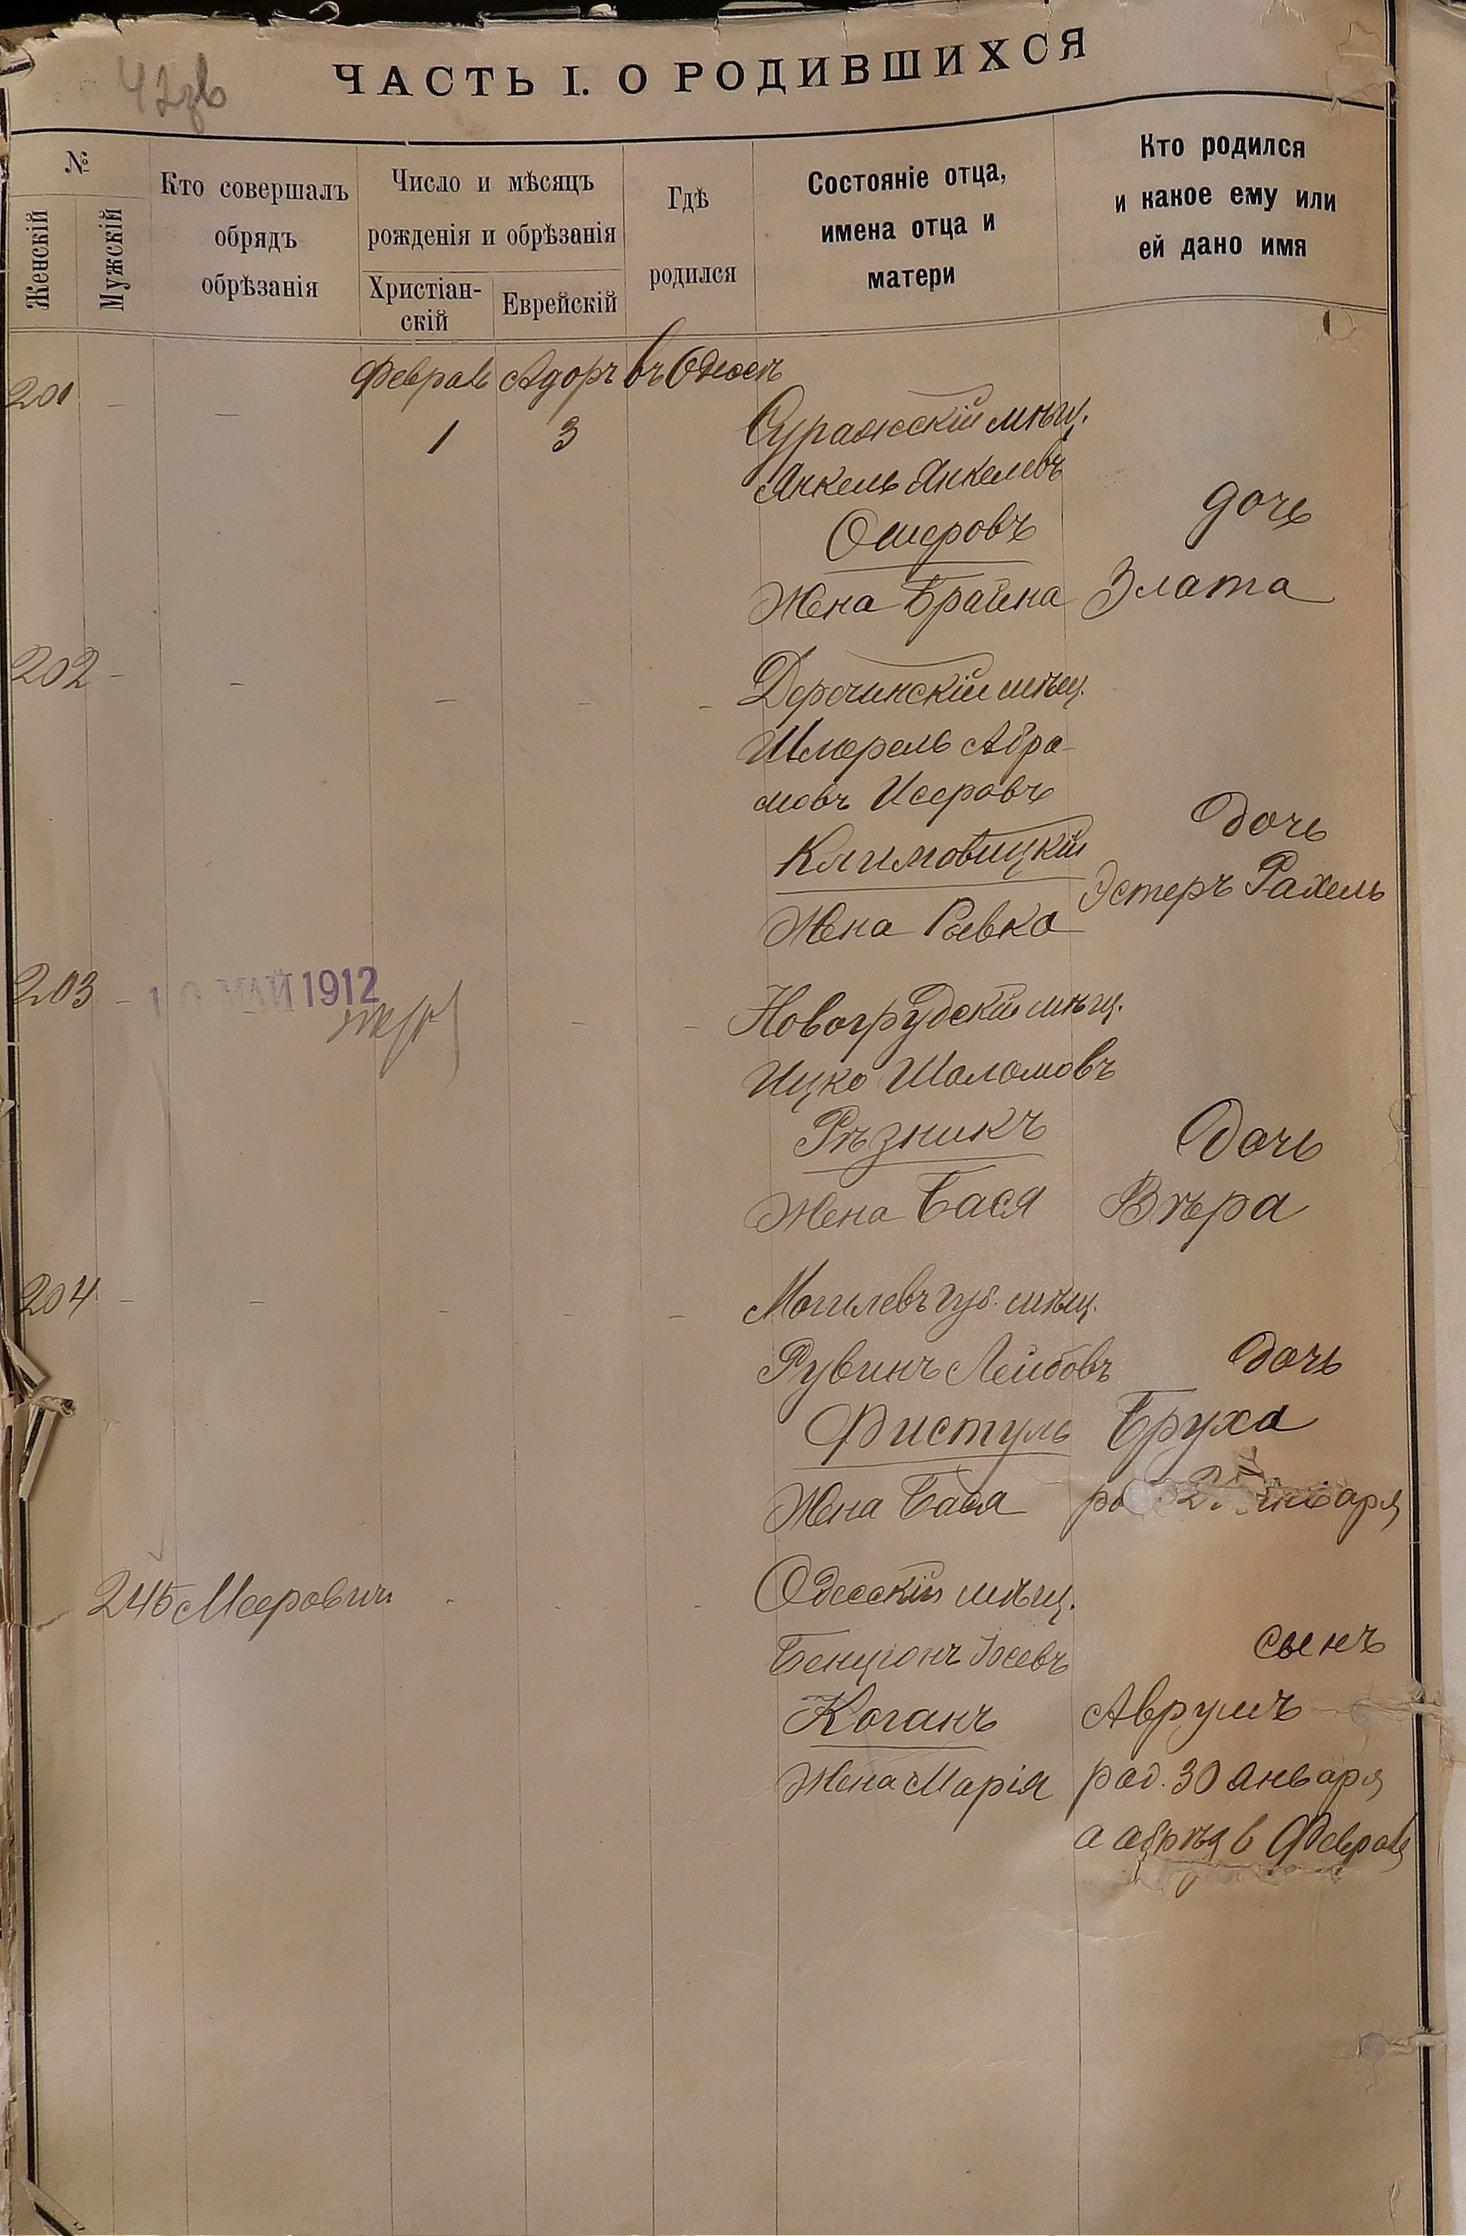 ЧАСТЬ I. О РОДИВШИХСЯ
№
Женскій
Мужскій
Кто совершалъ
обрядъ
обрѣзанія
Число и мѣсяцъ
рожденія и обрѣзанія
Христіан-
скій
Еврейскій
Гдѣ
родился
Состояніе отца,
имена отца и
матери
Кто родился
и какое ему или
ей дано имя
Феврал Адоръ въ Одессѣ
201 - - 1 3
Суражскій мѣщ.
Янкель Янкелевъ
Ошеровъ
Жена Брайна
дочь
Злата
202 - - - - -
Деречинскій мѣщ.
Шмерель Абра-
мовъ Исеровъ
Климовицкій
Жена Ривка
дочь
Эстеръ Рахель
203 - 10 МАЙ 1912 - -
Новогрудскій мѣщ.
Ицко Шоломовъ
Рѣзникъ
Жена Бася
дочь
Вѣра
204 - - - - -
Могилевъ губ. мѣщ.
Рувинъ Лейбовъ
Фистуль
Жена Бася
дочь
Бруха
января
245 Мееровичъ - - -
Одесскій мѣщ.
Бенціонъ Іосевъ
Коганъ
Жена Марія
сынъ
Аврумъ
род. 30 января
а обрѣз в Феврал